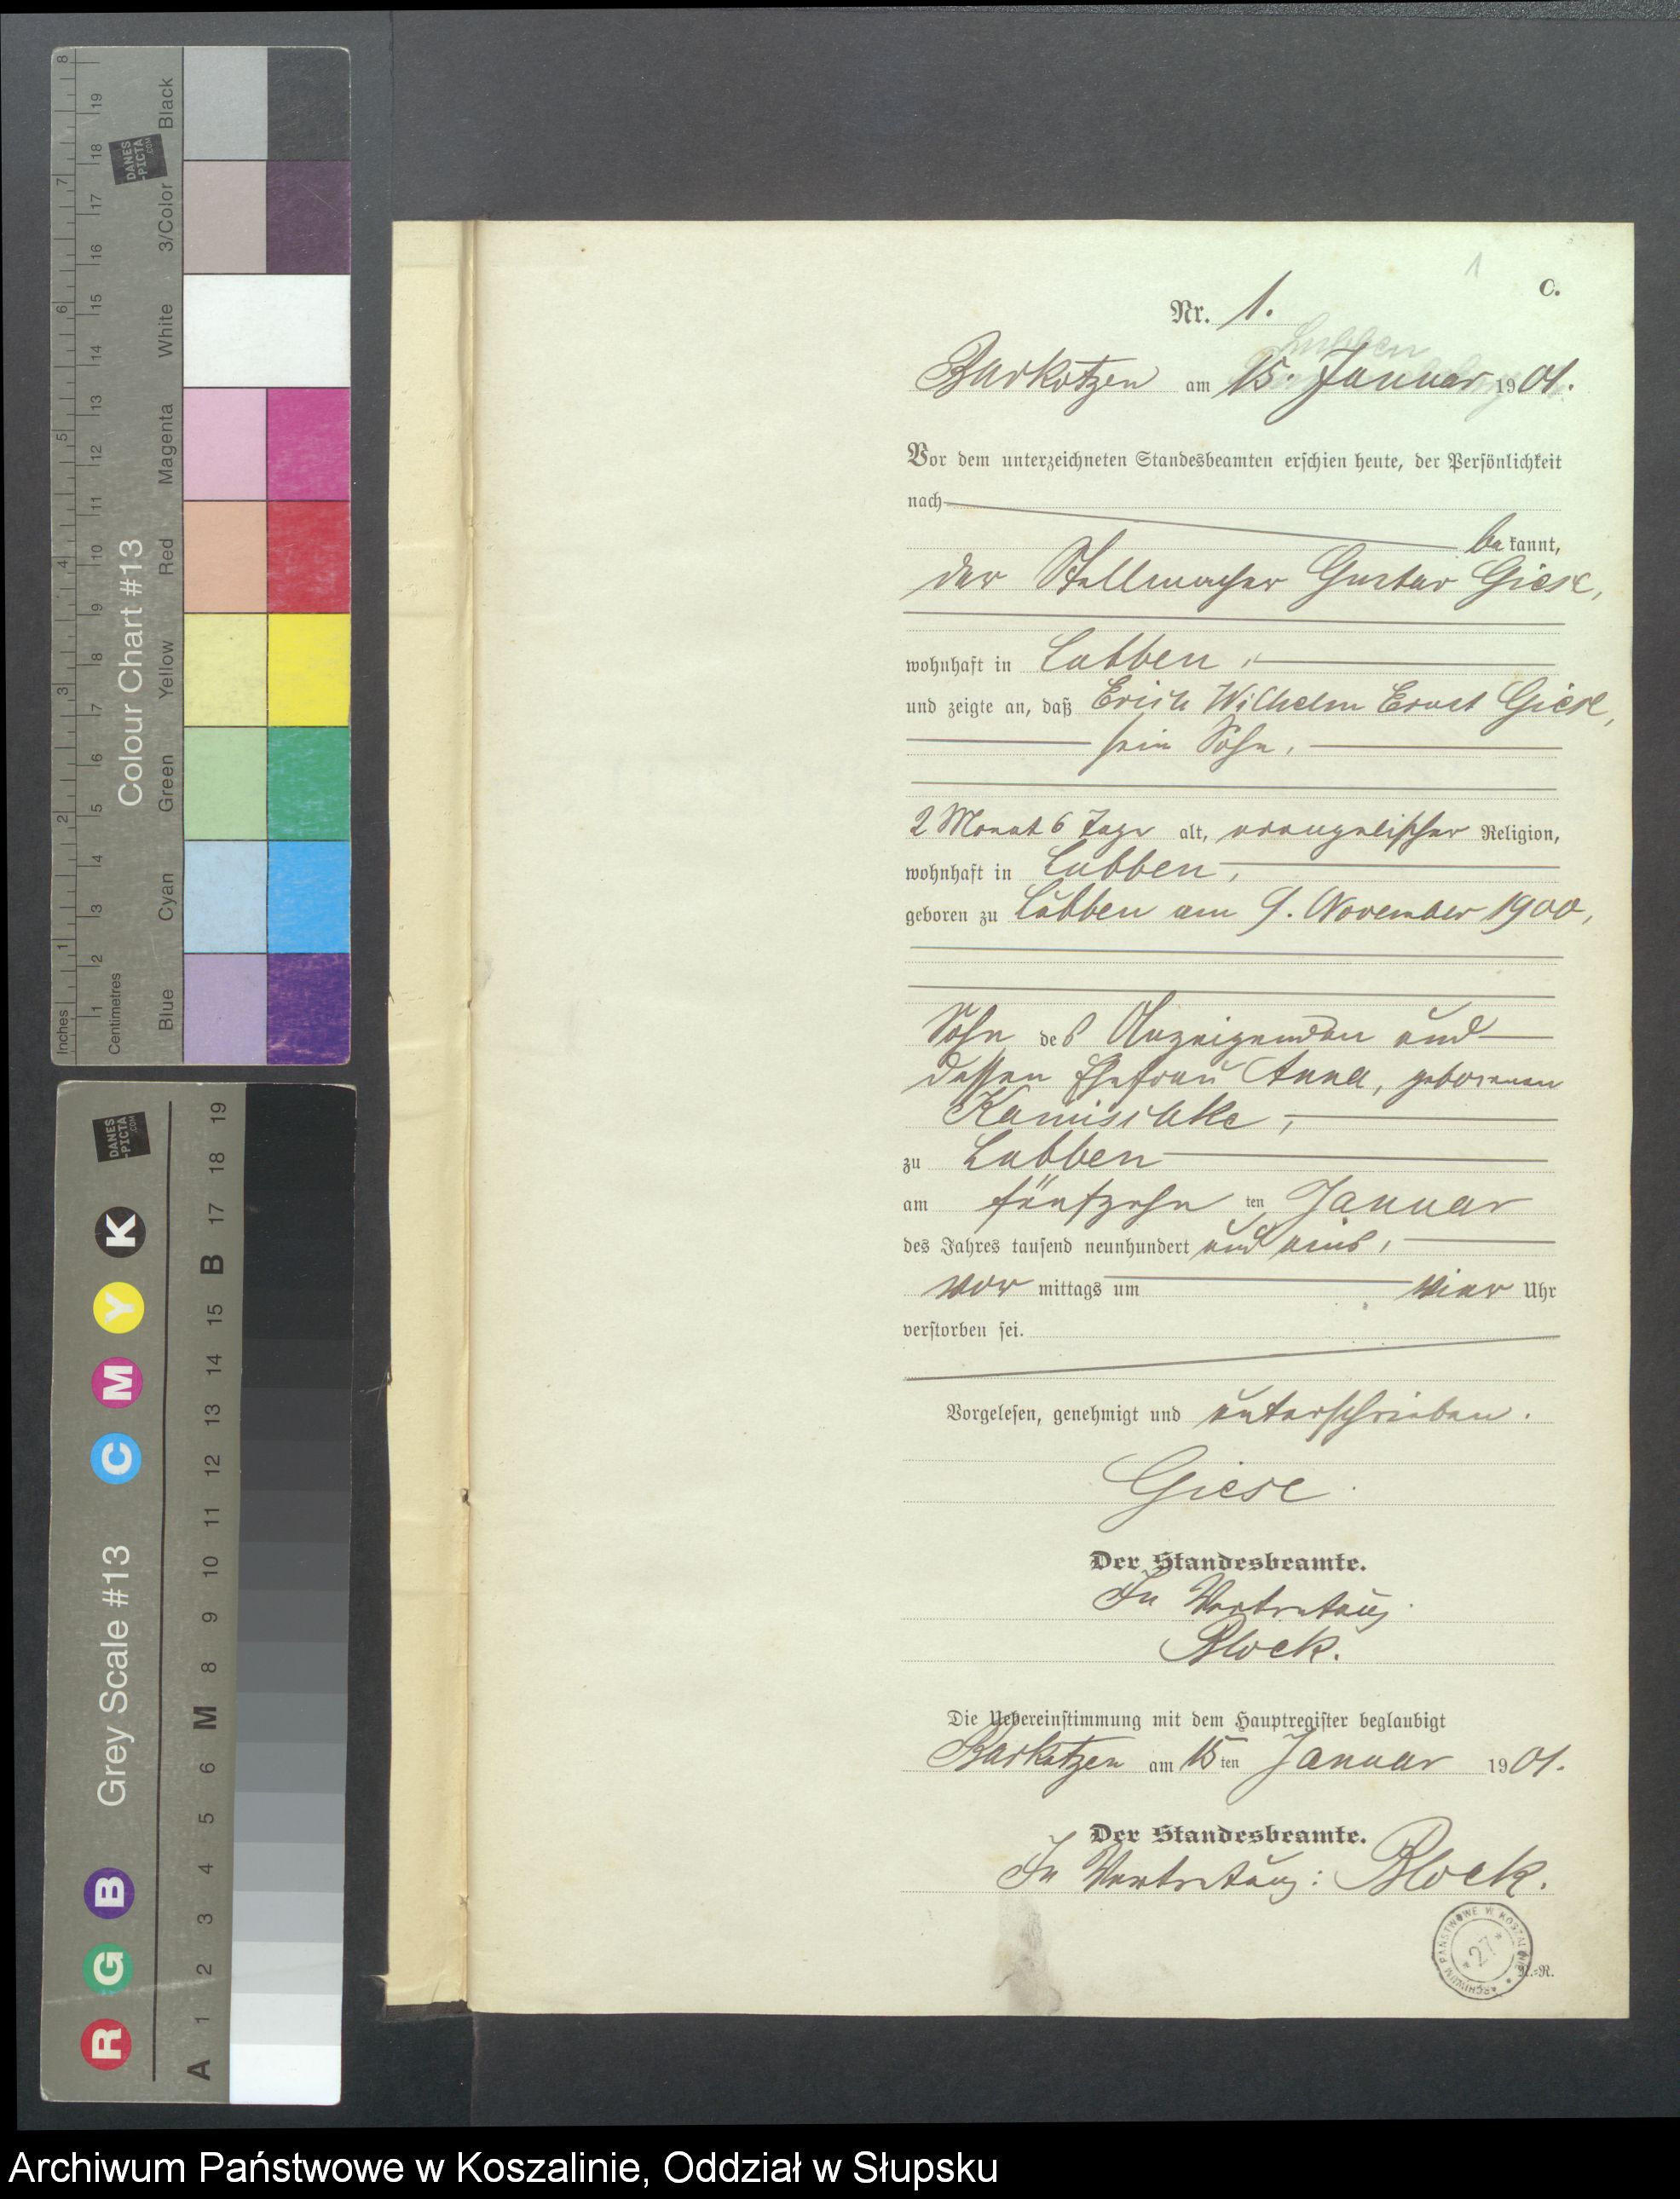 1
C.
Nr. 1.
Lubben
Barkotzen am 15. Januar 1901.
Vor dem unterzeichneten Standesbeamten erschien heute, der Persönlichkeit
nach
bekannt,
der Stellmacher Gustav Giese,
wohnhaft in Lubben,
und zeigte an, daß Erich Wilhelm Ernst Giese,
sein Sohn,
2 Monat 6 Tage alt, evangelischer Religion,
wohnhaft in Lubben,
geboren zu Lubben am 9. November 1900,
Sohn des Anzeigenden und
dessen Ehefrau Anna, geborenen
Kamischke,
zu Lubben
am fünfzehnten Januar
des Jahres tausend neunhundert und eins,
vor mittags um vier Uhr
verstorben sei.
Vorgelesen, genehmigt und unterschrieben.
Giese.
Der Standesbeamte.
In Vertretung
Block.
Die Uebereinstimmung mit dem Hauptregister beglaubigt
Barkotzen am 15ten Januar 1901.
Der Standesbeamte.
In Vertretung: Block.
ARCHIWUM PAŃSTWOWE W KOSZALINIE
*27*
R.-R.
Inches 1 2 3 4 5 6 7 8
Centimetres 1 2 3 4 5 6 7 8 9 10 11 12 13 14 15 16 17 18 19
Colour Chart #13
DANES-PICTA.COM
Blue Cyan Green Yellow Red Magenta White 3/Color Black
Grey Scale #13
DANES-PICTA.COM
R G B C M Y K
A 1 2 3 4 5 6 M 8 9 10 11 12 13 14 15 B 17 18 19
Archiwum Państwowe w Koszalinie, Oddział w Słupsku